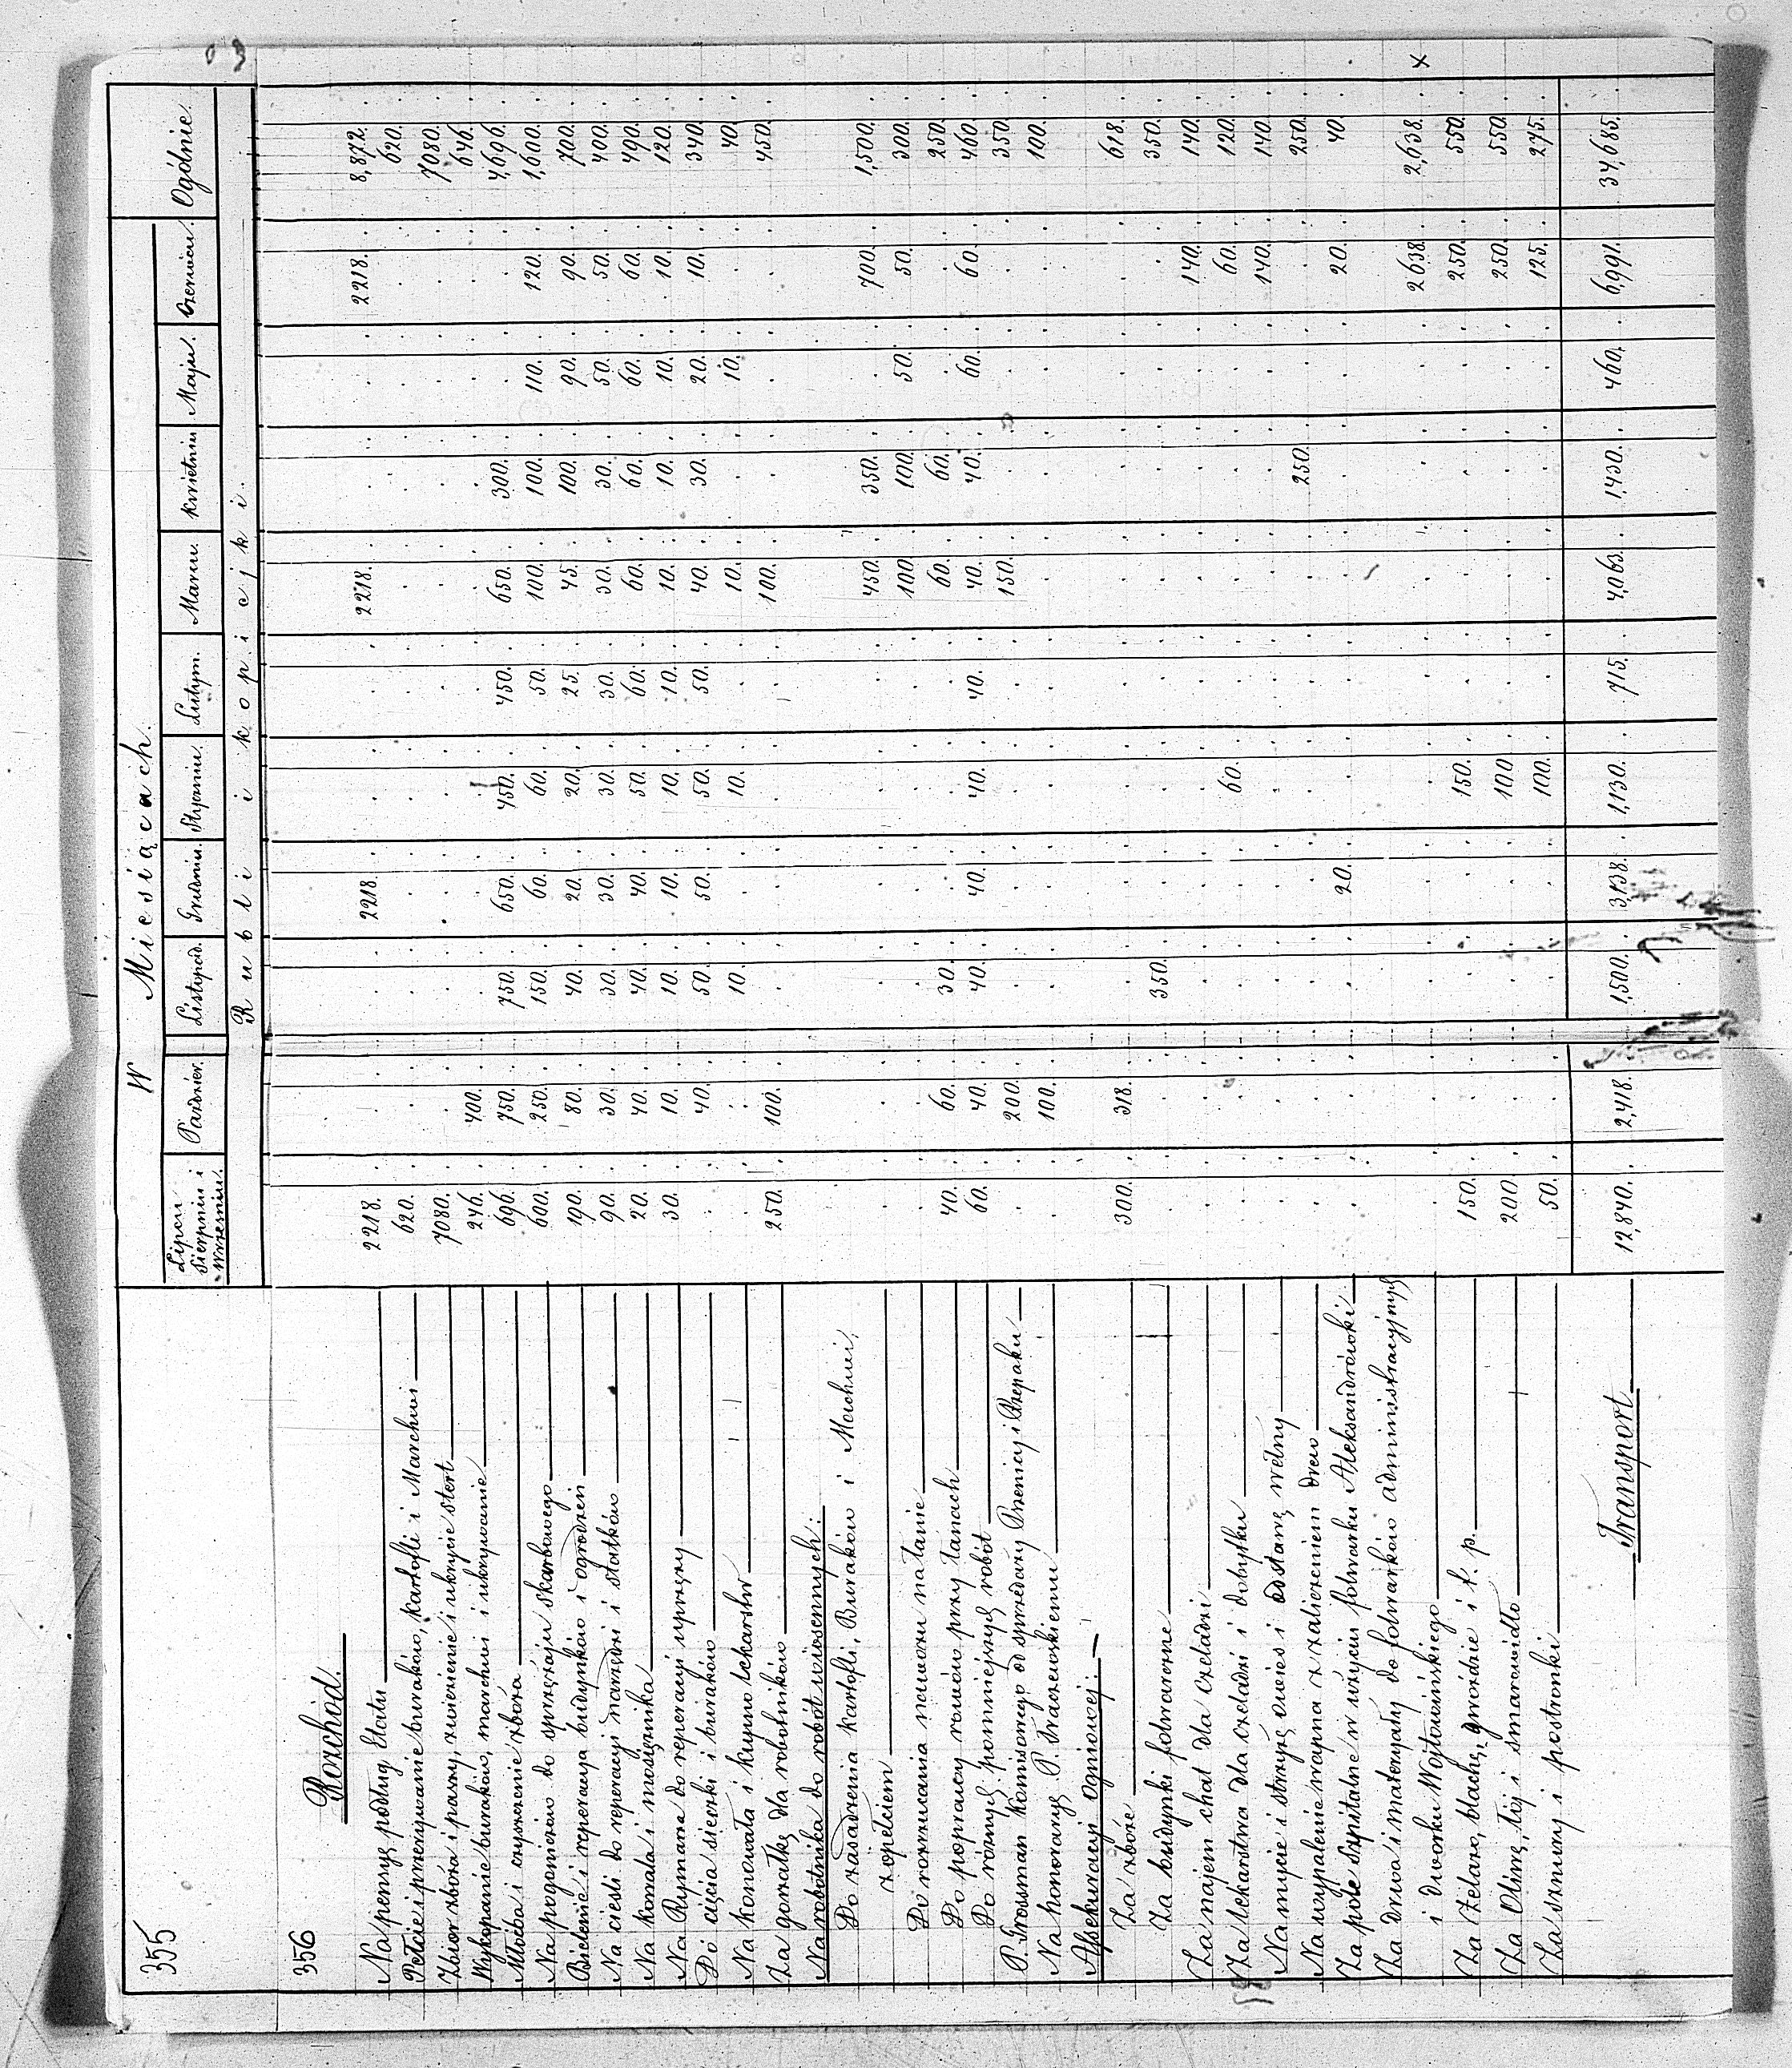 355
W Miesiącach.
Lipcu Sierpniu i Wrześniu. Paździer. Listopad. Grudniu. Styczniu. Lutym. Marcu. Kwietniu Maju. Czerwcu. Ogólnie.
Rubli i kopiejki.
356 Rozchód.
Na pensye podług Etatu 2218. 2218. 2218. 2218. 8,872.
Pełcie i przerywanie buraków, kartofli i Marchwi 620. 620.
Zbiór zboża i paszy, zwiezienie i ukrycie stert 7080. 7080.
Wykopanie buraków, marchwi i ukrywanie 246. 400. 646.
Młocba i czyszczenie zboża 696. 750. 750. 650. 450. 450. 650. 300. 4,696.
Na pogoniczów do sprzężaju skarbowego 600. 250. 150. 60. 60. 50. 100. 100. 110. 120. 1,600.
Bielenie i reperacya budynków i ogrodzeń 190. 80. 40. 20. 20. 25. 45. 100. 90. 90. 700.
Na cieśli do reperacyi narzędzi i statków 90. 30. 30. 30. 30. 30. 30. 30. 50. 50. 400.
Na kowala i mosiężnika 20. 40. 40. 40. 50. 60. 60. 60. 60. 60. 490.
Na Rymarza do reperacyi uprzęży 30. 10. 10. 10. 10. 10. 10. 10. 10. 10. 120.
Do cięcia sieczki i buraków 40. 50. 50. 50. 50. 40. 30. 20. 10. 340.
Na konowała i kupno lekarstw 10. 10. 10. 10. 40.
Za gorzałkę dla robotników 250. 100. 100. 450.
Na robotnika do robót wiosennych:
Do zasadzenia kartofli, Buraków i Marchwi,
z opełciem 450. 350. 700. 1,500.
Do rozrzucania nawozu na łanie 100. 100. 50. 50. 300.
Do poprawy rowów przy łanach 40. 60. 30. 60. 60. 250.
Do różnych pomniejszych robót 60. 40. 40. 40. 40. 40. 40. 40. 60. 60. 460.
P. Grosman Komisowego od sprzedaży Pszenicy i Rzepaku 200. 150. 350.
Na honorarye P. 100. 100.
Assekuracyi Ogniowej:
Za zboże 300. 318. 618.
Za budynki folwarczne 350. 350.
Za najem chat dla czeladzi 140. 140.
Za lekarstwa dla czeladzi i dobytku 60. 60. 120.
Na mycie i strzyżę owiec i odstawę wełny 140. 140.
Na wypalenie wapna z zaliczeniem drew 250. 250.
Za pole szpitalne w użyciu folwarku Aleksandrówki 20. 20. 40.
Za drwa i materyały do folwarków administracyjnych
i dworku Wojtowińskiego 2638. 2,638. x
Za Żelazo, blachę, gwoździe i t. p. 150. 150. 250. 550.
Za Oliwę, łój i smarowidło 200. 100. 250. 550.
Za sznury i postronki 50. 100. 125. 275.
Transport 12,840. 2,418. 1,500. 3,138. 1,130. 715. 4,063. 1,430. 460. 6,991. 34,685.